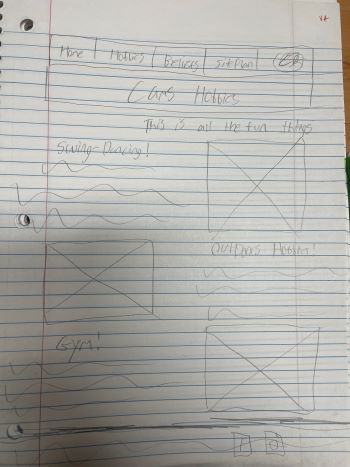 Home Hobbies Site Plan
Cars Hobbies
This is all the fun things
Swing-Dancing!
Outdoors Hobbies!
Gym!